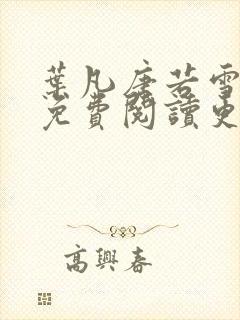 葉凡唐若雪
免費閱讀更
高興春